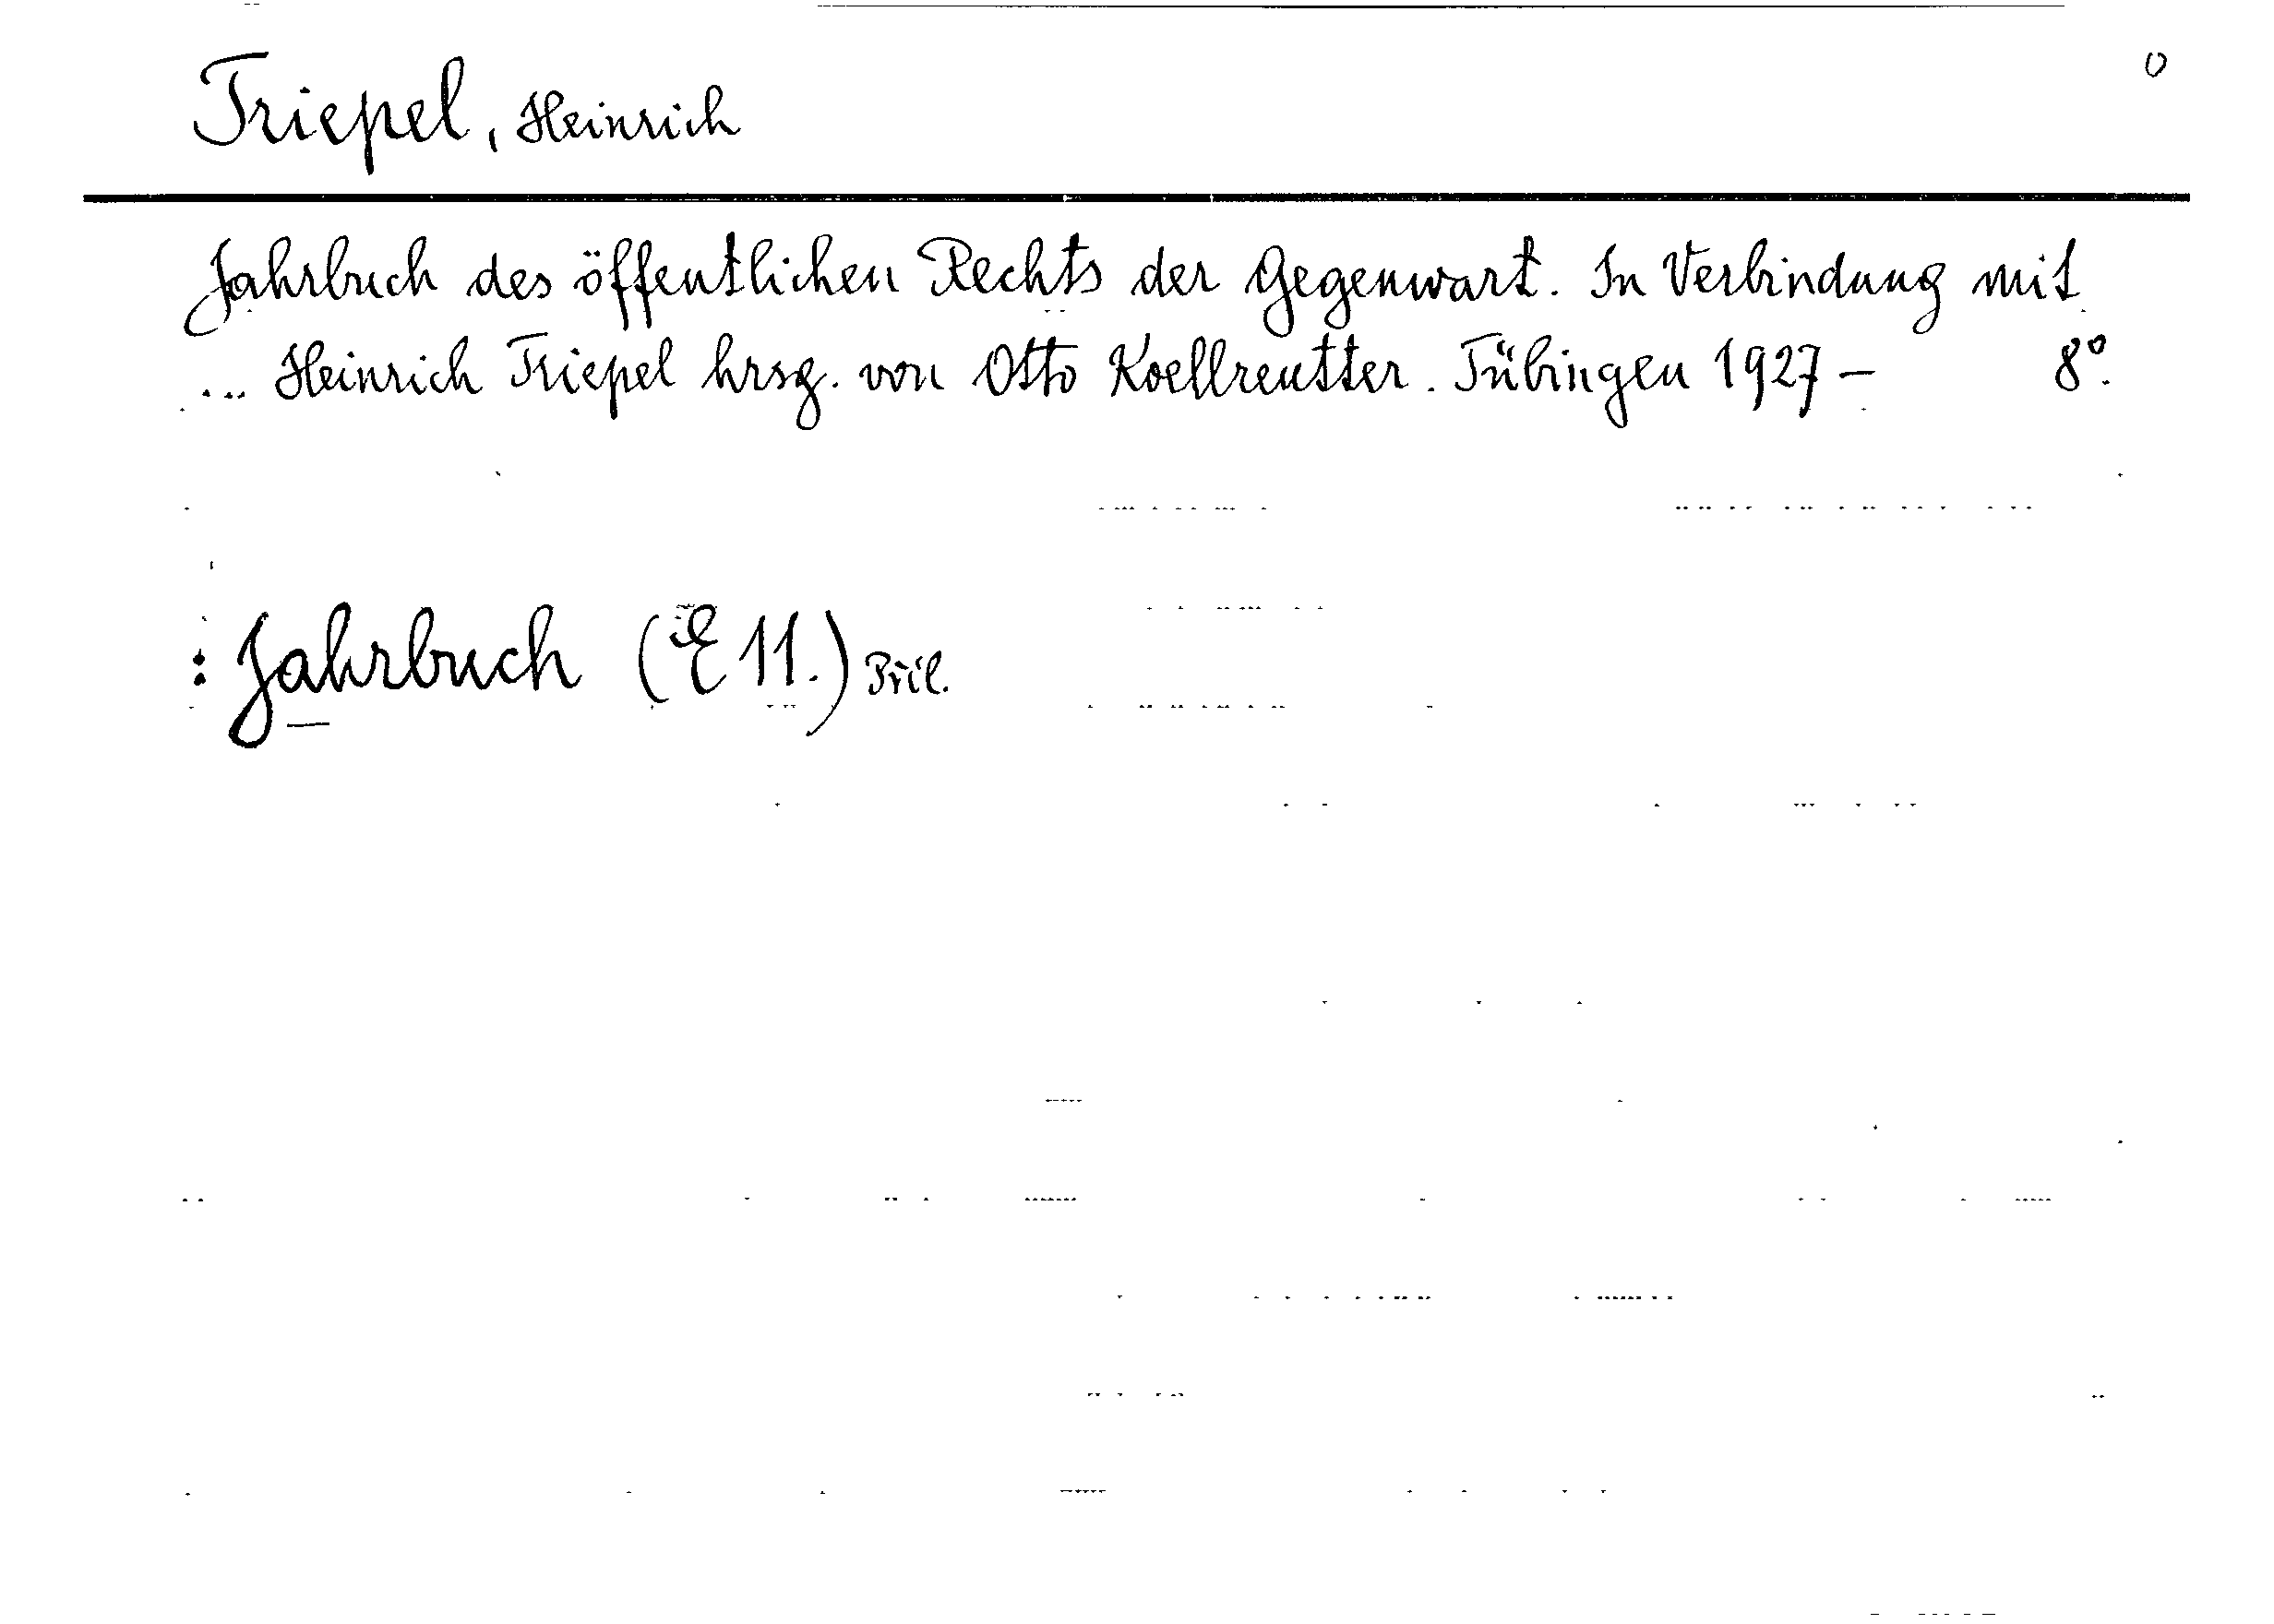 0
Triepel, Heinrich
Jahrbuch des öffentlichen Rechts der Gegenwart. In Verbindung mit
... Heinrich Triepel hrsg. von Otto Koellreutter. Tübingen 1927 – 8º.
: Jahrbuch (E 11.) Příl.